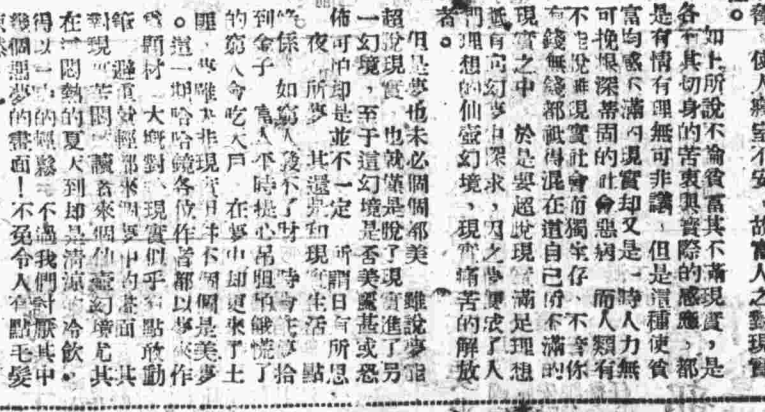 使人寢室不安，故富人之對現實
。
如上所說不論貧富其不滿現實，是
各有其切身的苦衷與實際的感應，都
是有情有理無可非議，但是這種使貧
富均感不滿的現實却又是一時人力無
可挽恨深蒂固的社會惡病，而人類有
不能脫離現實社會而獨生存，不管你
有錢無錢都祇得混在這自己所不滿的
現實之中，於是要超脫現實滿足理想
祇有向幻夢中深求，因之夢便成了人
們理想的仙壺幻境，現實痛苦的解放
者。
但是夢也未必個個都美，雖說夢能
超脫現實，也就僅是脫了現實進了另
一幻境，至于這幻境是否美麗甚或恐
佈可怕却是並不一定，所謂日有所思
夜有所夢，其還是和現實生活有點
關係，如窮人發不了財，時會在夢拾
到金子，富人平時提心吊胆怕餓慌了
的窮人會吃大戶，在夢中却更來了土
匪，夢雖非現實但并不個個是美夢
。這一期哈哈鏡各位作者都以夢來作
為題材，大概對於現實似乎有點敢動
筆，避重就輕都來個夢中的畫面，其
對現實苦悶的讀者來個仙壺幻境尤其
在這悶熱的夏天到却是清涼的冷飲。
得以一時的輕鬆，不過我們討厭其中
幾個惡夢的畫面！不免令人有點毛髮